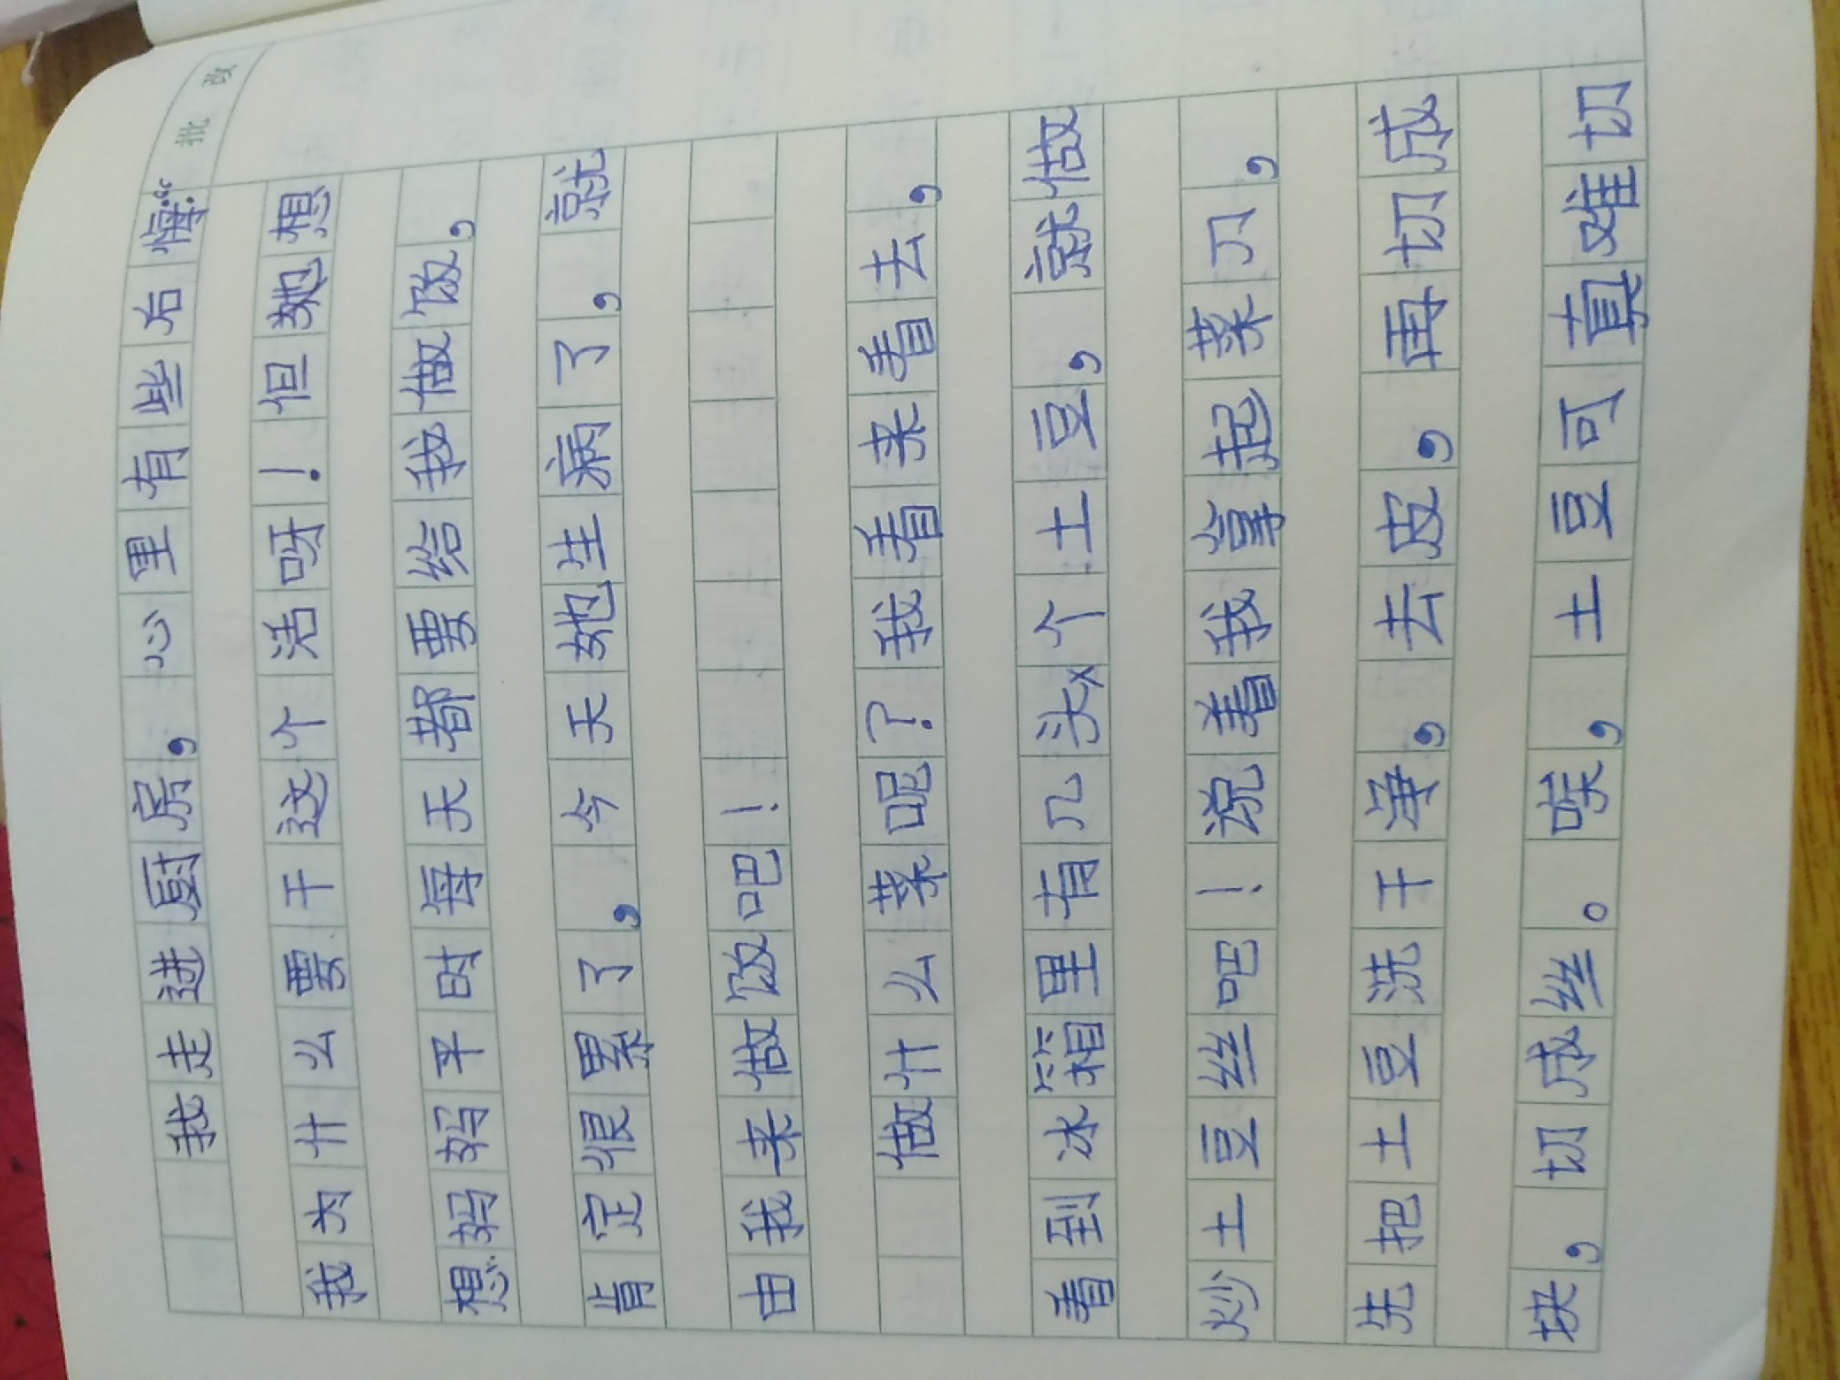 批改
我走进厨房，心里有些后悔:“
我为什么要干这个活呀！但她想
想妈妈平时每天都要给我做饭，
肯定很累了，今天她生病了，就
由我来做饭吧！
做什么菜呢？我看来看去，
看到冰箱里有几头个土豆，就做
炒土豆丝吧！说着我拿起菜刀，
先把土豆洗干净，去皮，再切成
块，切成丝。唉，土豆可真难切